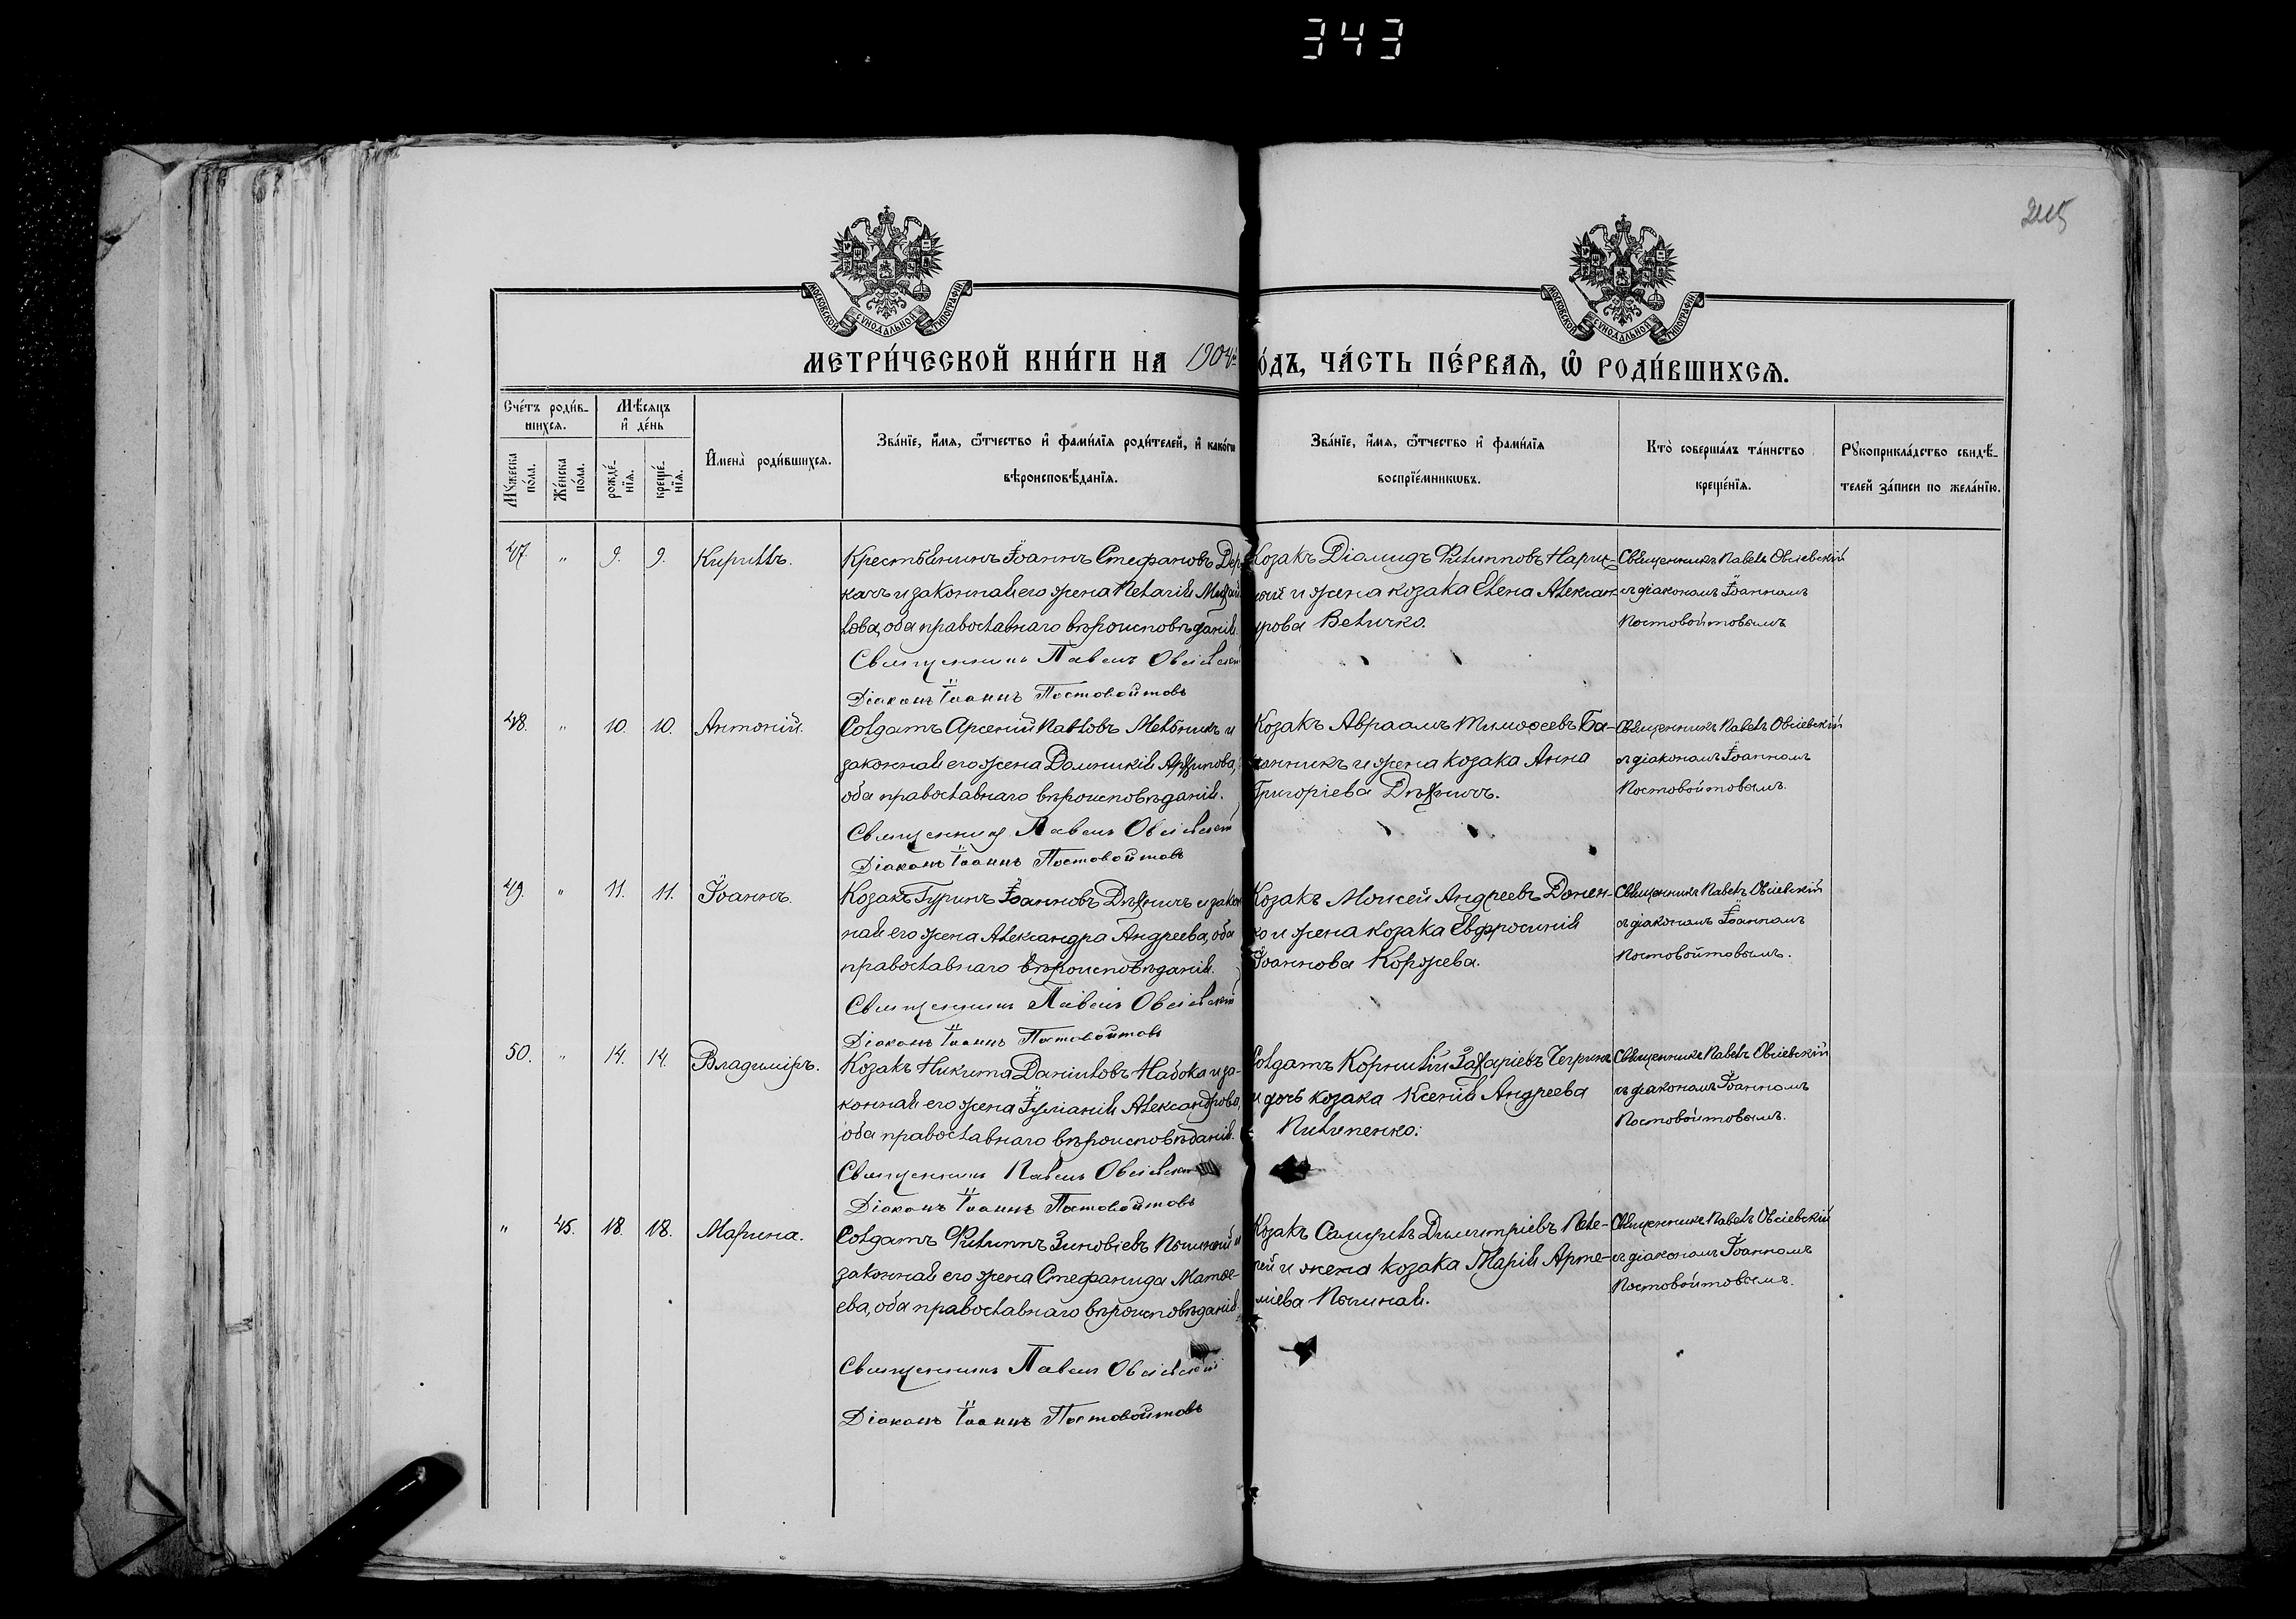 343
245
МОСКОВСКОЙ СѴНОДАЛЬНОЙ ТИПОГРАФІИ
МОСКОВСКОЙ СѴНОДАЛЬНОЙ ТИПОГРАФІИ
МЕТРИ́ЧЕСКОЙ КНИ́ГИ НА 1904й
О́ДЪ, ЧА́СТЬ ПЕ́РВАѦ, Ѡ҆ РОДИ́ВШИХСѦ.
Сче́тъ роди́в-
шихсѧ.
Мѣ́сѧцъ
и҆ де́нь
Мꙋ́жеска
по́ла.
Же́нска
по́ла.
рожде́-
нїѧ.
креще́-
нїѧ.
И҆мена̀ роди́вшихсѧ.
Зва́нїе, и҆́мѧ, ѻ҆́тчество и҆ фами́лїѧ роди́телей, и҆ како́гѡ
вѣроисповѣ́данїѧ.
Зва́нїе, и҆́мѧ, ѻ҆́тчество и҆ фами́лїѧ
воспрїе́мникѡвъ.
Кто̀ соверша́лъ та́инство
креще́нїѧ.
Рꙋкоприкла́дство свидѣ́-
телей за́писи по жела́нїю.
47. " 9. 9. Кириллъ.
Крестьянинъ Іоаннъ Стефановъ Дер-
качъ и законная его жена Пелагія Михай
лова, оба православнаго вѣроисповѣданія.
Священникъ Павелъ Овсіевскій
Діаконъ Іоаннъ Постовойтовъ
Козакъ Діомидъ Филипповъ
и жена козака Елена Алексан-
дрова Величко.
Священникъ Павелъ Овсіевскій
съ діакономъ Іоанномъ
Постовойтовымъ
48. " 10. 10. Антоній.
Солдатъ Арсеній Павловъ Мельникъ и
законная его жена Домникія Архипова,
оба православнаго вѣроисповѣданія.
Священникъ Павелъ Овсіевскій
Діаконъ Іоаннъ Постовойтовъ
Козакъ Авраамъ Тимоѳеевъ Ба-
нникъ и жена козака Анна
Григоріева Дѣхничъ.
Священникъ Павелъ Овсіевскій
съ діакономъ Іоанномъ
Постовойтовымъ.
49. " 11. 11. Іоаннъ.
Козакъ Гуринъ Іоанновъ Дѣхничъ и закон
ная его жена Александра Андреева, оба
православнаго вѣроисповѣданія.
Священникъ Павелъ Овсіевскій
Діаконъ Іоаннъ Постовойтовъ
Козакъ Моисей Андреевъ Донен-
ко и жена козака Евфросинія
Іоаннова Коржева.
Священникъ Павелъ Овсіевскій
съ діакономъ Іоанномъ
Постовойтовымъ.
50. " 14. 14. Владиміръ.
Козакъ Никита Даніиловъ Набока и за-
конная его жена Іуліанія Александрова,
оба православнаго вѣроисповѣданія.
Священникъ Павелъ Овсіевскій
Діаконъ Іоаннъ Постовойтовъ
Солдатъ Корнилій Захаріевъ
и дочь козака Ксенія Андреева
Пилипенко.
Священникъ Павелъ Овсіевскій
съ діакономъ Іоанномъ
Постовойтовымъ.
" 45. 18. 18. Марина.
Солдатъ Филиппъ Зиновіевъ и
законная его жена Стефанида Матѳе-
ева, оба православнаго вѣроисповѣданія.
Священникъ Павелъ Овсіевскій
Діаконъ Іоаннъ Постовойтовъ
Козакъ Самуилъ Димитріевъ Пеле-
хей и жена козака Марія Арте-
міева
Священникъ Павелъ Овсіевскій
съ діакономъ Іоанномъ
Постовойтовымъ.